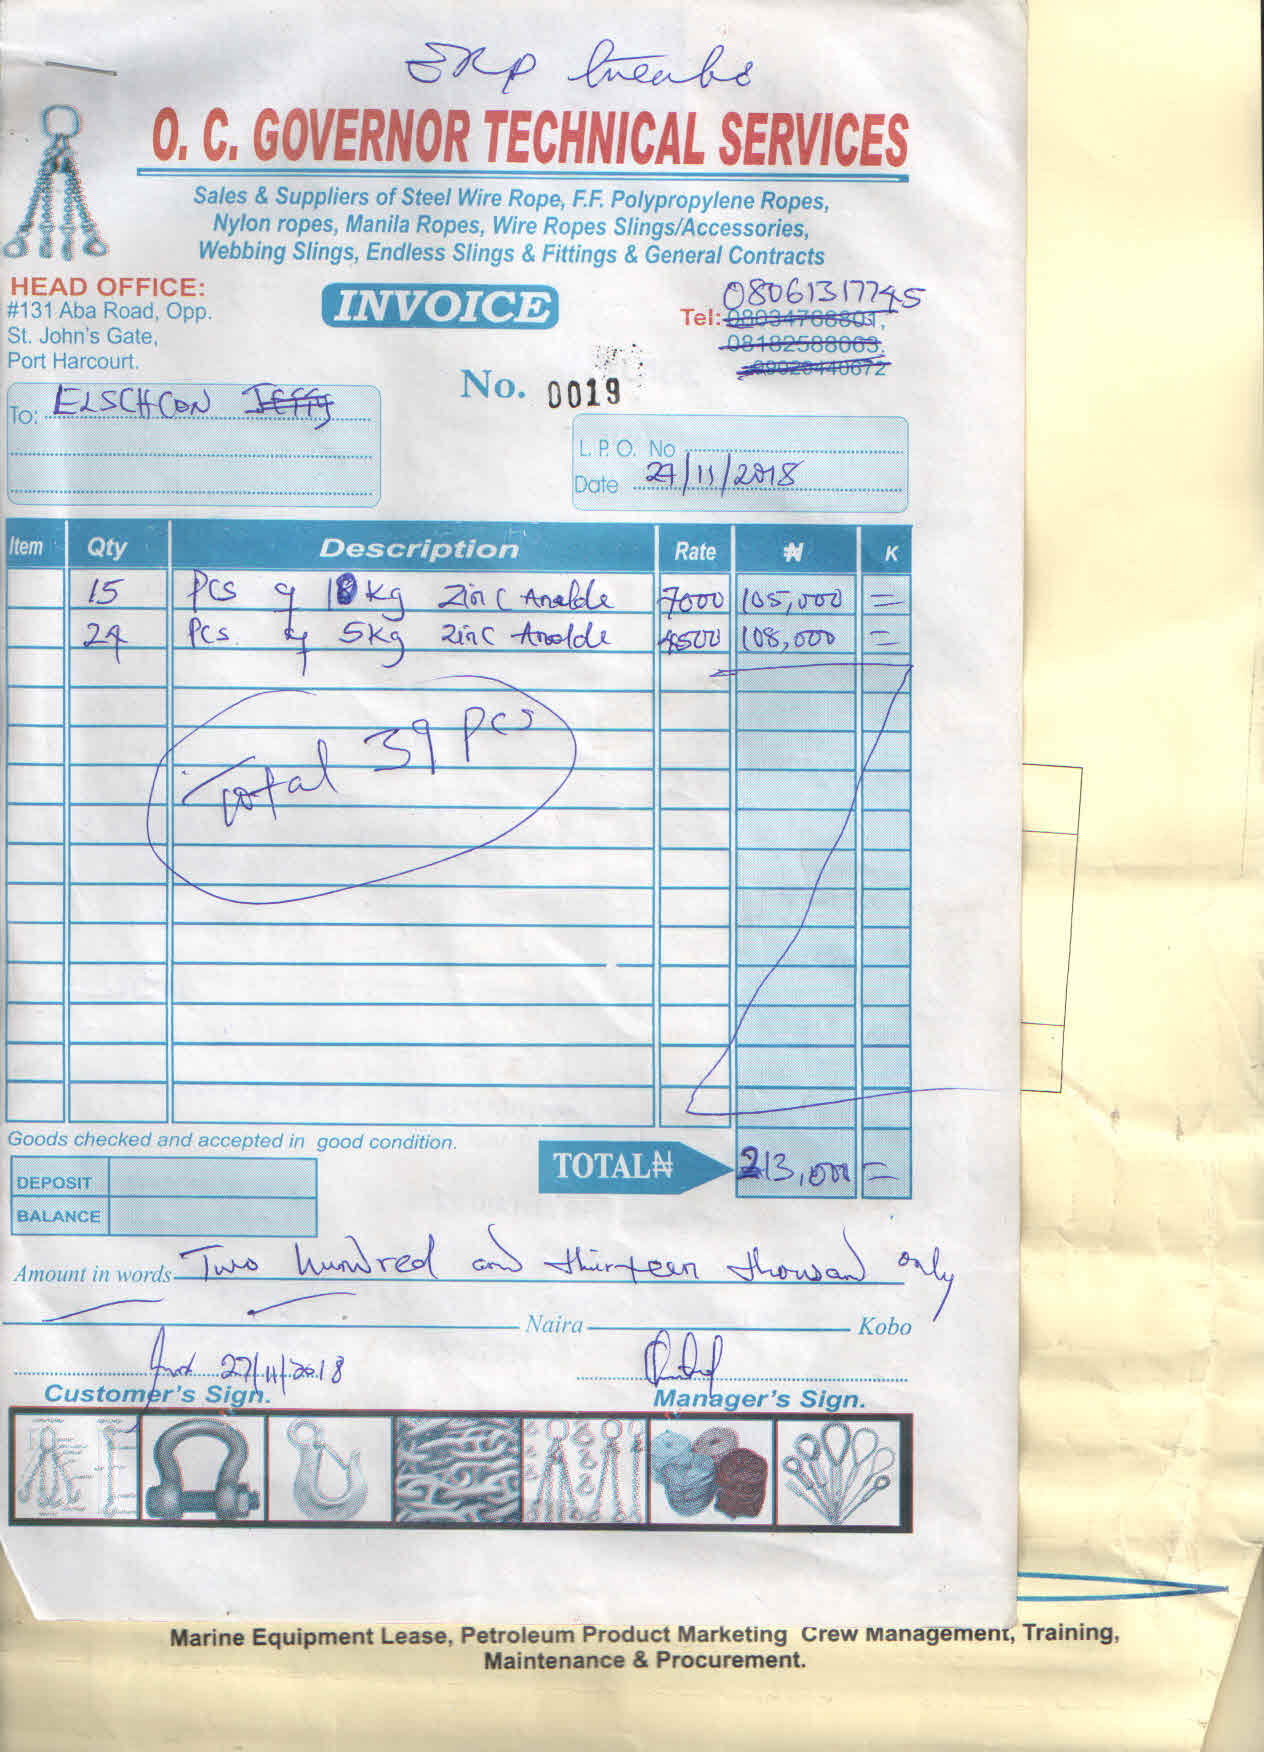 O. C. GOVERNOR TECHNICAL SERVICES
Sales & Suppliers of Steel Wire Rope, F.F. Polypropylene Ropes,
Nylon ropes, Manila Ropes, Wire Ropes Slings/Accessories,
Webbing Slings, Endless Slings & Fittings & General Contracts
HEAD OFFICE:
#131 Aba Road, Opp.
St. John's Gate,
Port Harcourt.
INVOICE
08061317745
Tel: 08034768801,
08182588063
08020440672
No. 0019
To: ELSCHCON Jeffy
L.P.O. No
Date 27/11/2018
Item Qty Description Rate ₦ K
15 Pcs of 10kg Zinc 7000 105,000 =
24 Pcs. of 5kg Zinc 4500 108,000 =
Total 39 Pcs
Goods checked and accepted in good condition.
TOTAL ₦ 213,000 =
DEPOSIT
BALANCE
Amount in words Two hundred and thirteen thousand only
Naira Kobo
27/11/2018
Customer's Sign. Manager's Sign.
Marine Equipment Lease, Petroleum Product Marketing Crew Management, Training,
Maintenance & Procurement.